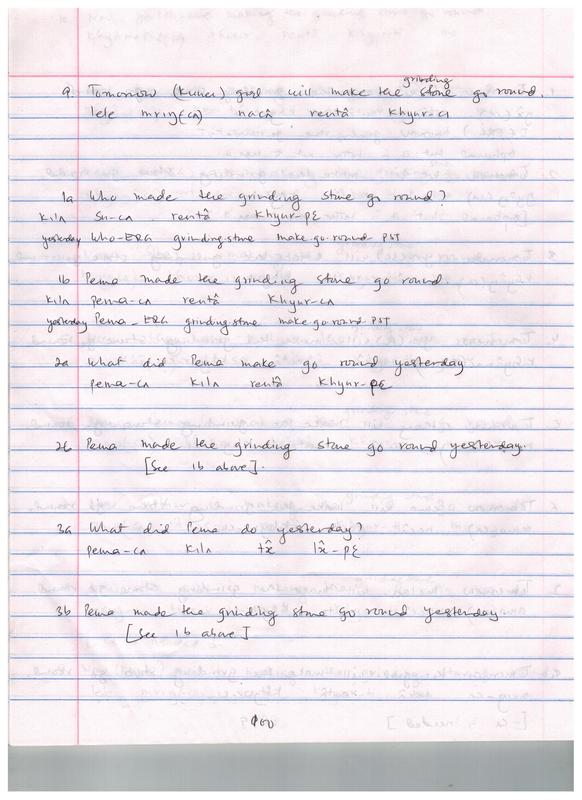 9. Tomorrow (kuner) girl will make the grinding stone go round.
lele mriŋ(cʌ) nacâ rentâ khyur-ʌ
1a Who made the grinding stone go round?
kilʌ su-cʌ rentâ khyur-pɛ
yesterday Who-ERG grinding stone make-go-round-PST
1b Pema made the grinding stone go round
kilʌ pema-cʌ rentâ khyur-cʌ
yesterday Pema-ERG grinding stone make go round-PST
2a What did Pema make go round yesterday
pema-cʌ kilʌ rentâ khyur-pɛ
2b Pema made the grinding stone go round yesterday.
[See 1b above].
3a What did Pema do yesterday?
pema-cʌ kilʌ lx̂-pɛ
3b Pema made the grinding stone go round yesterday
[See 1b above]